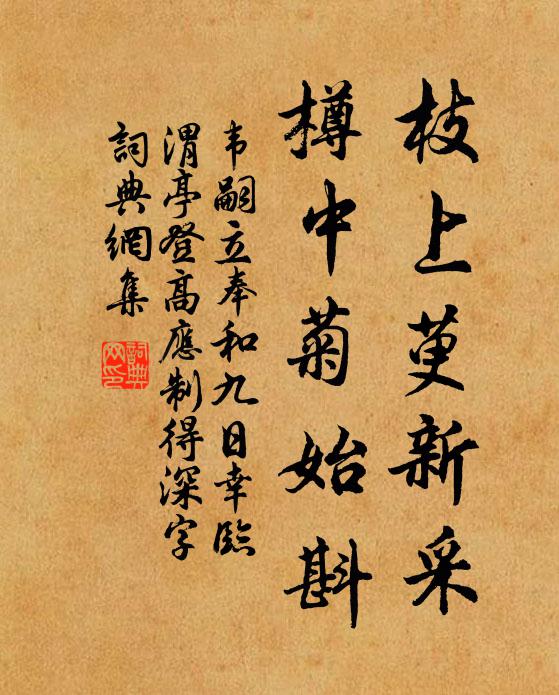 枝上萸新采
樽中菊始斟
韦嗣立奉和九日幸臨
渭亭登高應制得深字
詞典網集
詞典网印